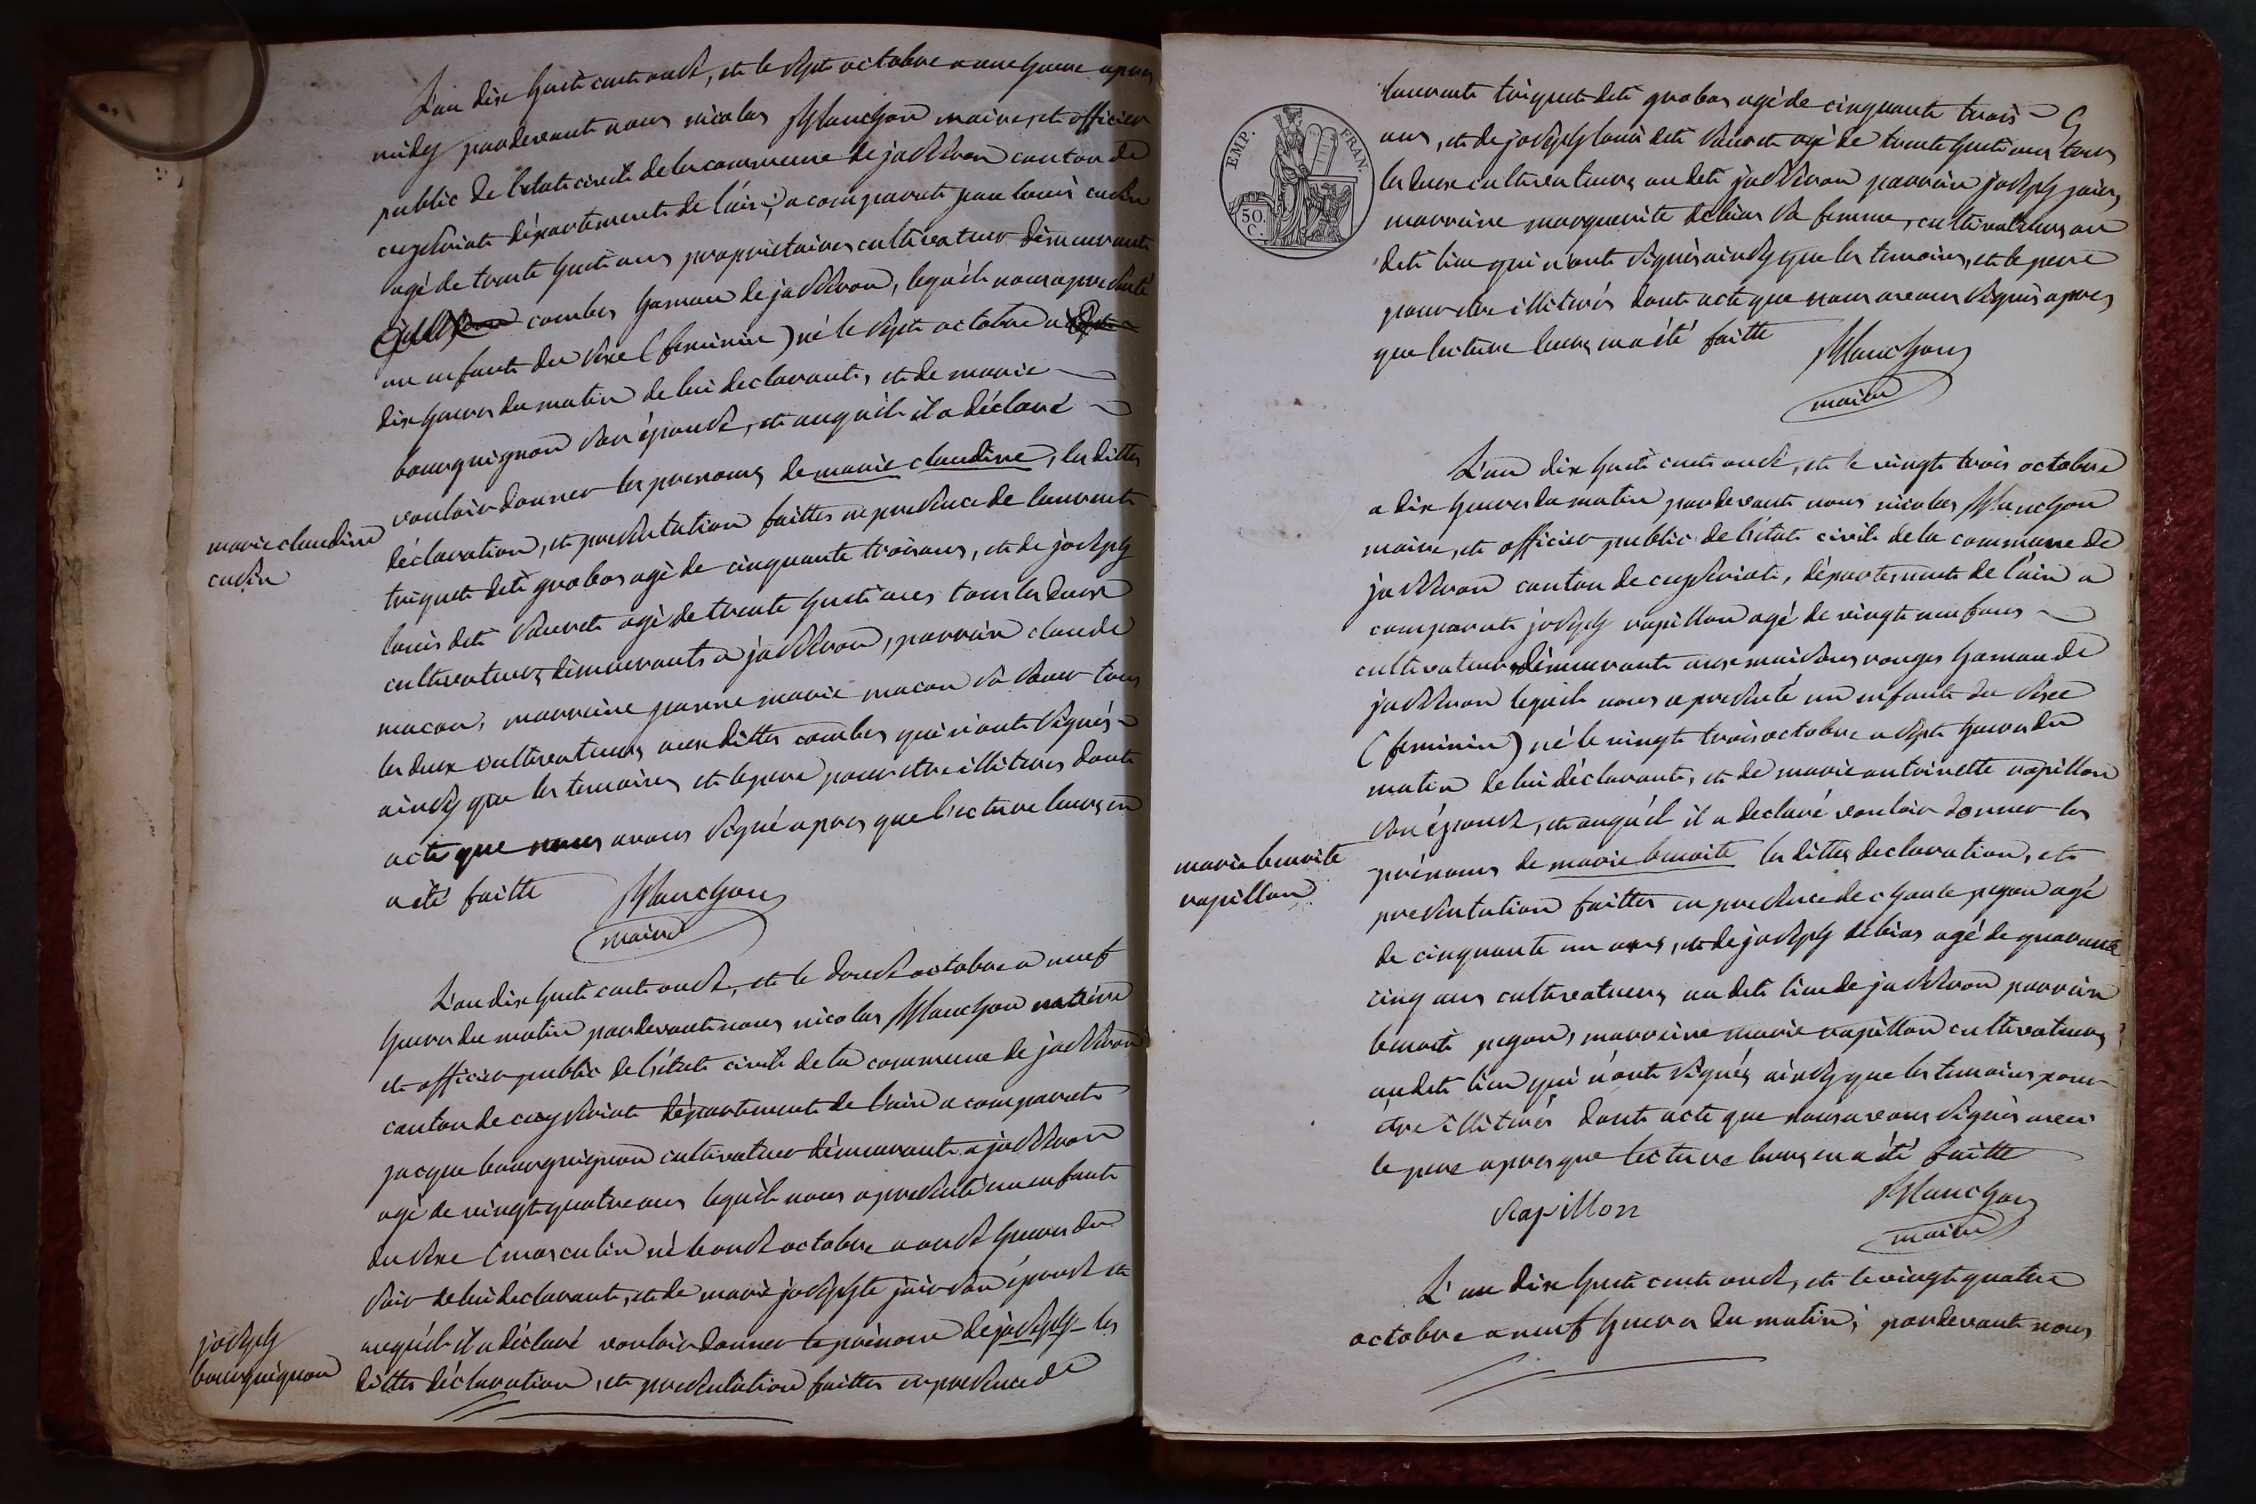 L'an dix huit cent onze, et le sept octobre a une heure apres
midy pardevant nous nicolas Planchon maire, et officier
public de l'etat civil de la commune de jasseron canton de
ceyzeriat département de l'ain, a comparut jean louis cadin
agé de trente huit ans propriétaire cultivateur demeurant
combes hameau de jasseron, lequel nous a presenté
un enfant du sexe (feminin) né le sept octobre a
dix heures du matin de lui declarant, et de marie
bourguignon son épouse, et auquel il a déclaré
vouloir donner les prenoms de marie claudine, les dittes
déclaration, et presentation faittes en presence de laurent
triquet dit grabos agé de cinquante trois ans, et de joseph
louis dit sauret agé de trente huit ans tous les deux
cultivateurs demeurants a jasseron, parrain claude
macon, marraine jeanne marie macon sa sœur tous
les deux cultivateurs aux dittes combes qui n'ont signés
ainsy que les temoins, et le pere pour etre illiteres dont
acte que nous avons signé apres que lecture leurs en
a été faitte Planchon
maire
marie claudine
cadin
L'an dix huit cent onze, et le douze octobre a neuf
heures du matin pardevant nous nicolas Planchon maire
et officier public de l'état civil de la commune de jasseron
canton de ceyzeriat département de l'ain a comparut
jacque bourguignon cultivateur demeurant a jasseron
agé de vingt quatre ans lequel nous a presenté un enfant
du sexe (masculin né le onze octobre a onze heures du
soir de lui declarant, et de marie josephte son épouse et
auquel il a déclaré vouloir donner le prénom de joseph les
dittes déclaration, et presentation faittes en presence de
joseph
bourguignon
EMP. FRAN.
50.
C.
laurent triquet dit grabos agé de cinquante trois
ans, et de joseph louis dit sauret agé de trente huit ans tous
les deux cultivateurs au dit jasseron parrain joseph
marraine marguerite debias sa femme, cultivateurs au
dit lieu qui n'ont signés ainsy que les temoins, et le pere
pour etre illiterés dont acte que nous avons signés apres
que lecture leurs en a été faitte Planchon
maire
L'an dix huit cent onze, et le vingt trois octobre
a dix heures du matin pardevant nous nicolas Planchon
maire, et officier public de l'état civil de la commune de
jasseron canton de ceyzeriat, département de l'ain a
comparut joseph rapillon agé de vingt neuf ans
cultivateur demeurant aux maisons rouges hameau de
jasseron lequel nous a presenté un enfant du sexe
(feminin) né le vingt trois octobre a sept heures du
matin de lui déclarant, et de marie antoinette rapillon
son épouse, et auquel il a declaré vouloir donner les
prénoms de marie benoite les dittes declaration, et
presentation faittes en presence de pegon agé
de cinquante un ans, et de joseph debias agé de quarante
cinq ans cultivateurs au dit lieu de jasseron parrain
benoit pegon, marraine marie rapillon cultivateurs
au dit lieu qui n'ont signés ainsy que les temoins pour
être illiterés dont acte que nous avons signés avec
le pere apres que lecture leurs en a été faitte
Rapillon Planchon
maire
marie benoite
rapillon
L'an dix huit cent onze, et le vingt quatre
octobre a neuf heures du matin, pardevant nous